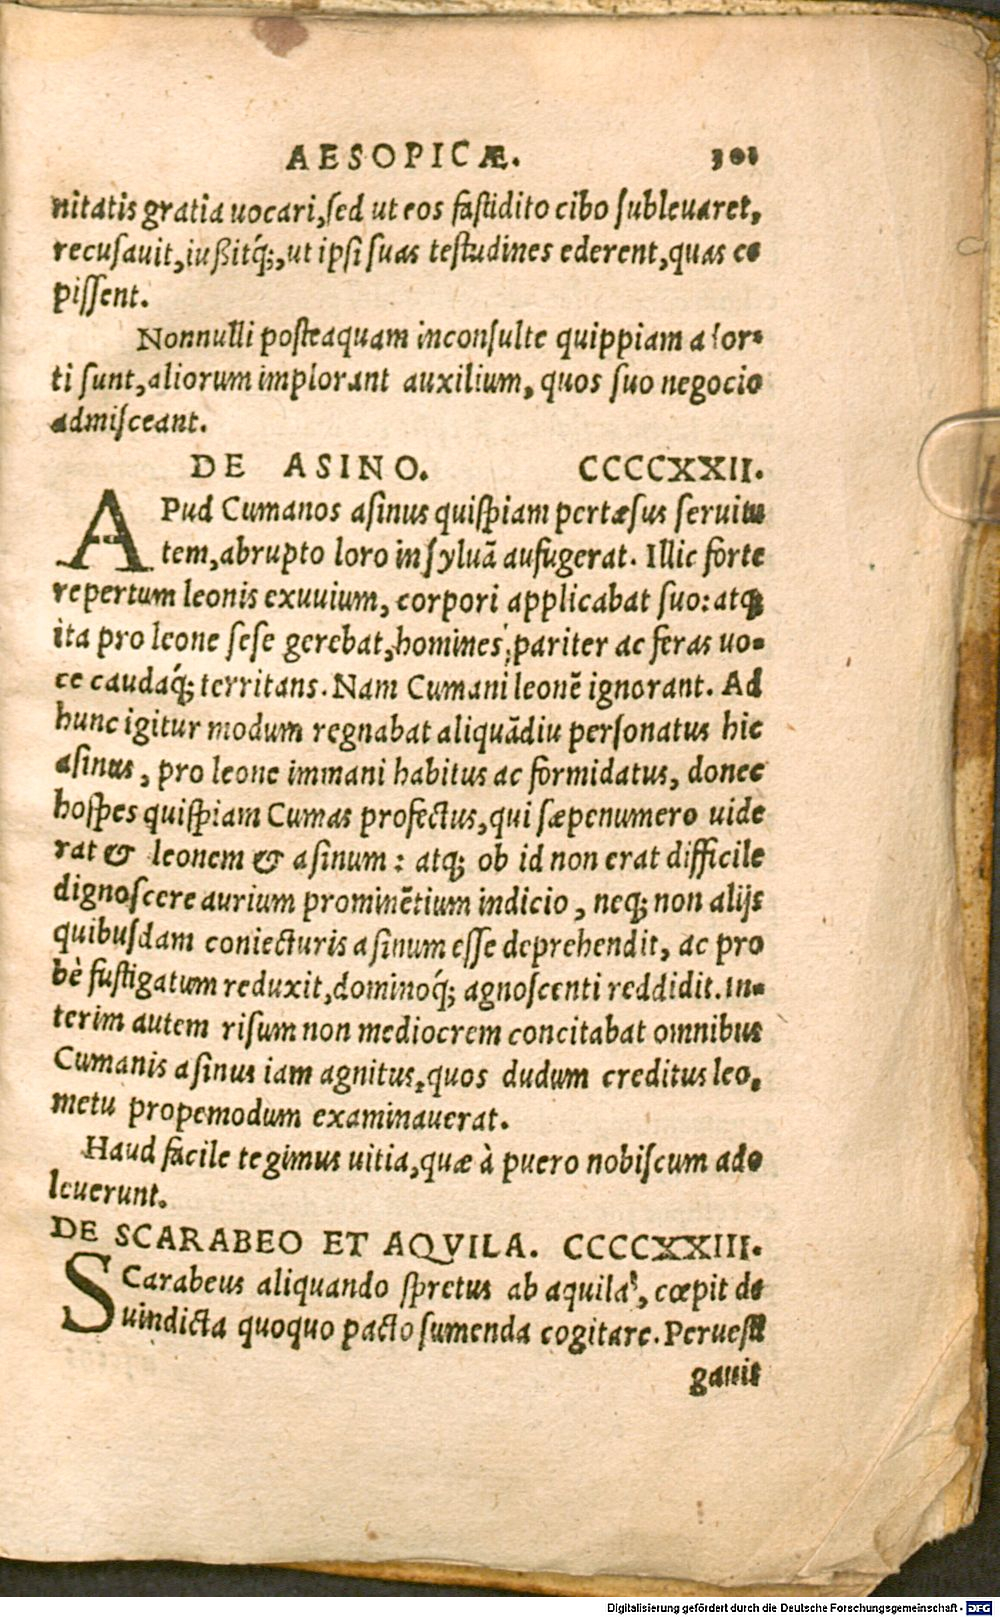 AESOPICÆ. 301
nitatis gratia uocari, sed ut eos fastidito cibo subleuaret,
recusauit, iußitq́;, ut ipsi suas testudines ederent, quas ce
pissent.
Nonnulli posteaquam inconsulte quippiam adsor-
ti sunt, aliorum implorant auxilium, quos suo negocio
admisceant.
DE ASINO. CCCCXXII.
APud Cumanos asinus quispiam pertæsus seruitu
tem, abrupto loro in syluã aufugerat. Illic forte
repertum leonis exuuium, corpori applicabat suo: atq;
ita pro leone sese gerebat, homines pariter ac feras uo-
ce caudaq́; territans. Nam Cumani leonẽ ignorant. Ad
hunc igitur modum regnabat aliquãdiu personatus hic
asinus, pro leone immani habitus ac formidatus, donec
hospes quispiam Cumas profectus, qui sæpenumero uide
rat & leonem & asinum: atq; ob id non erat difficile
dignoscere aurium prominẽtium indicio, neq; non alijs
quibusdam coniecturis asinum esse deprehendit, ac pro
bè fustigatum reduxit, dominoq́; agnoscenti reddidit. In-
terim autem risum non mediocrem concitabat omnibus
Cumanis asinus iam agnitus, quos dudum creditus leo,
metu propemodum examinauerat.
Haud facile tegimus uitia, quæ à puero nobiscum ado
leuerunt.
DE SCARABEO ET AQVILA. CCCCXXIII.
SCarabeus aliquando spretus ab aquila, cœpit de
uindicta quoquo pacto sumenda cogitare. Peruesti
gauit
Digitalisierung gefördert durch die Deutsche Forschungsgemeinschaft - DFG